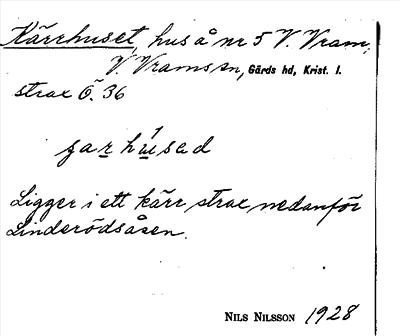 Kärrhuset, hus å nr 5 V. Vram,
V. Vrams sn, Gärds hd, Krist. l.
strax Ö. 36
ɟar húsad
Ligger i ett kärr strax nedanför
Linderödsåsen.
NILS NILSSON 1928